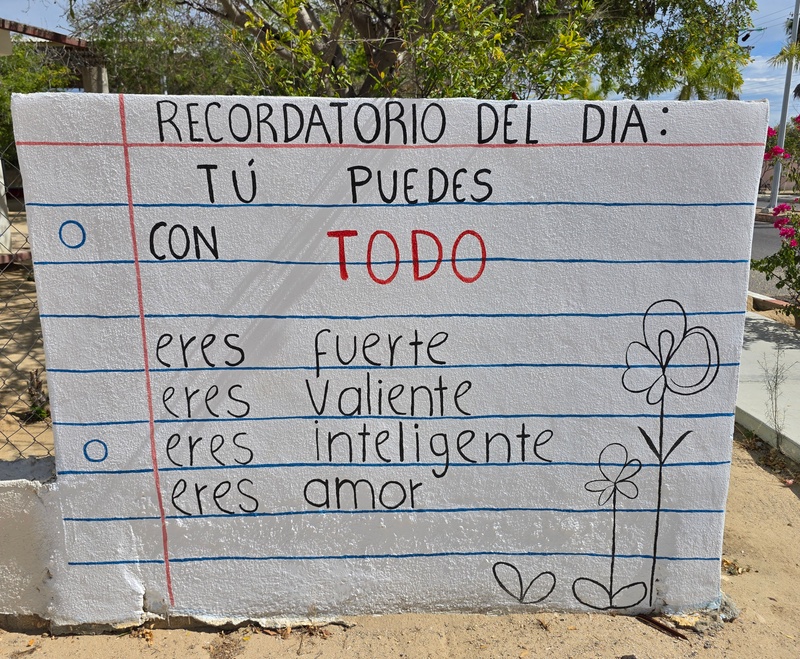 RECORDATORIO DEL DIA:
TÚ PUEDES
CON TODO
eres fuerte
eres valiente
eres inteligente
eres amor